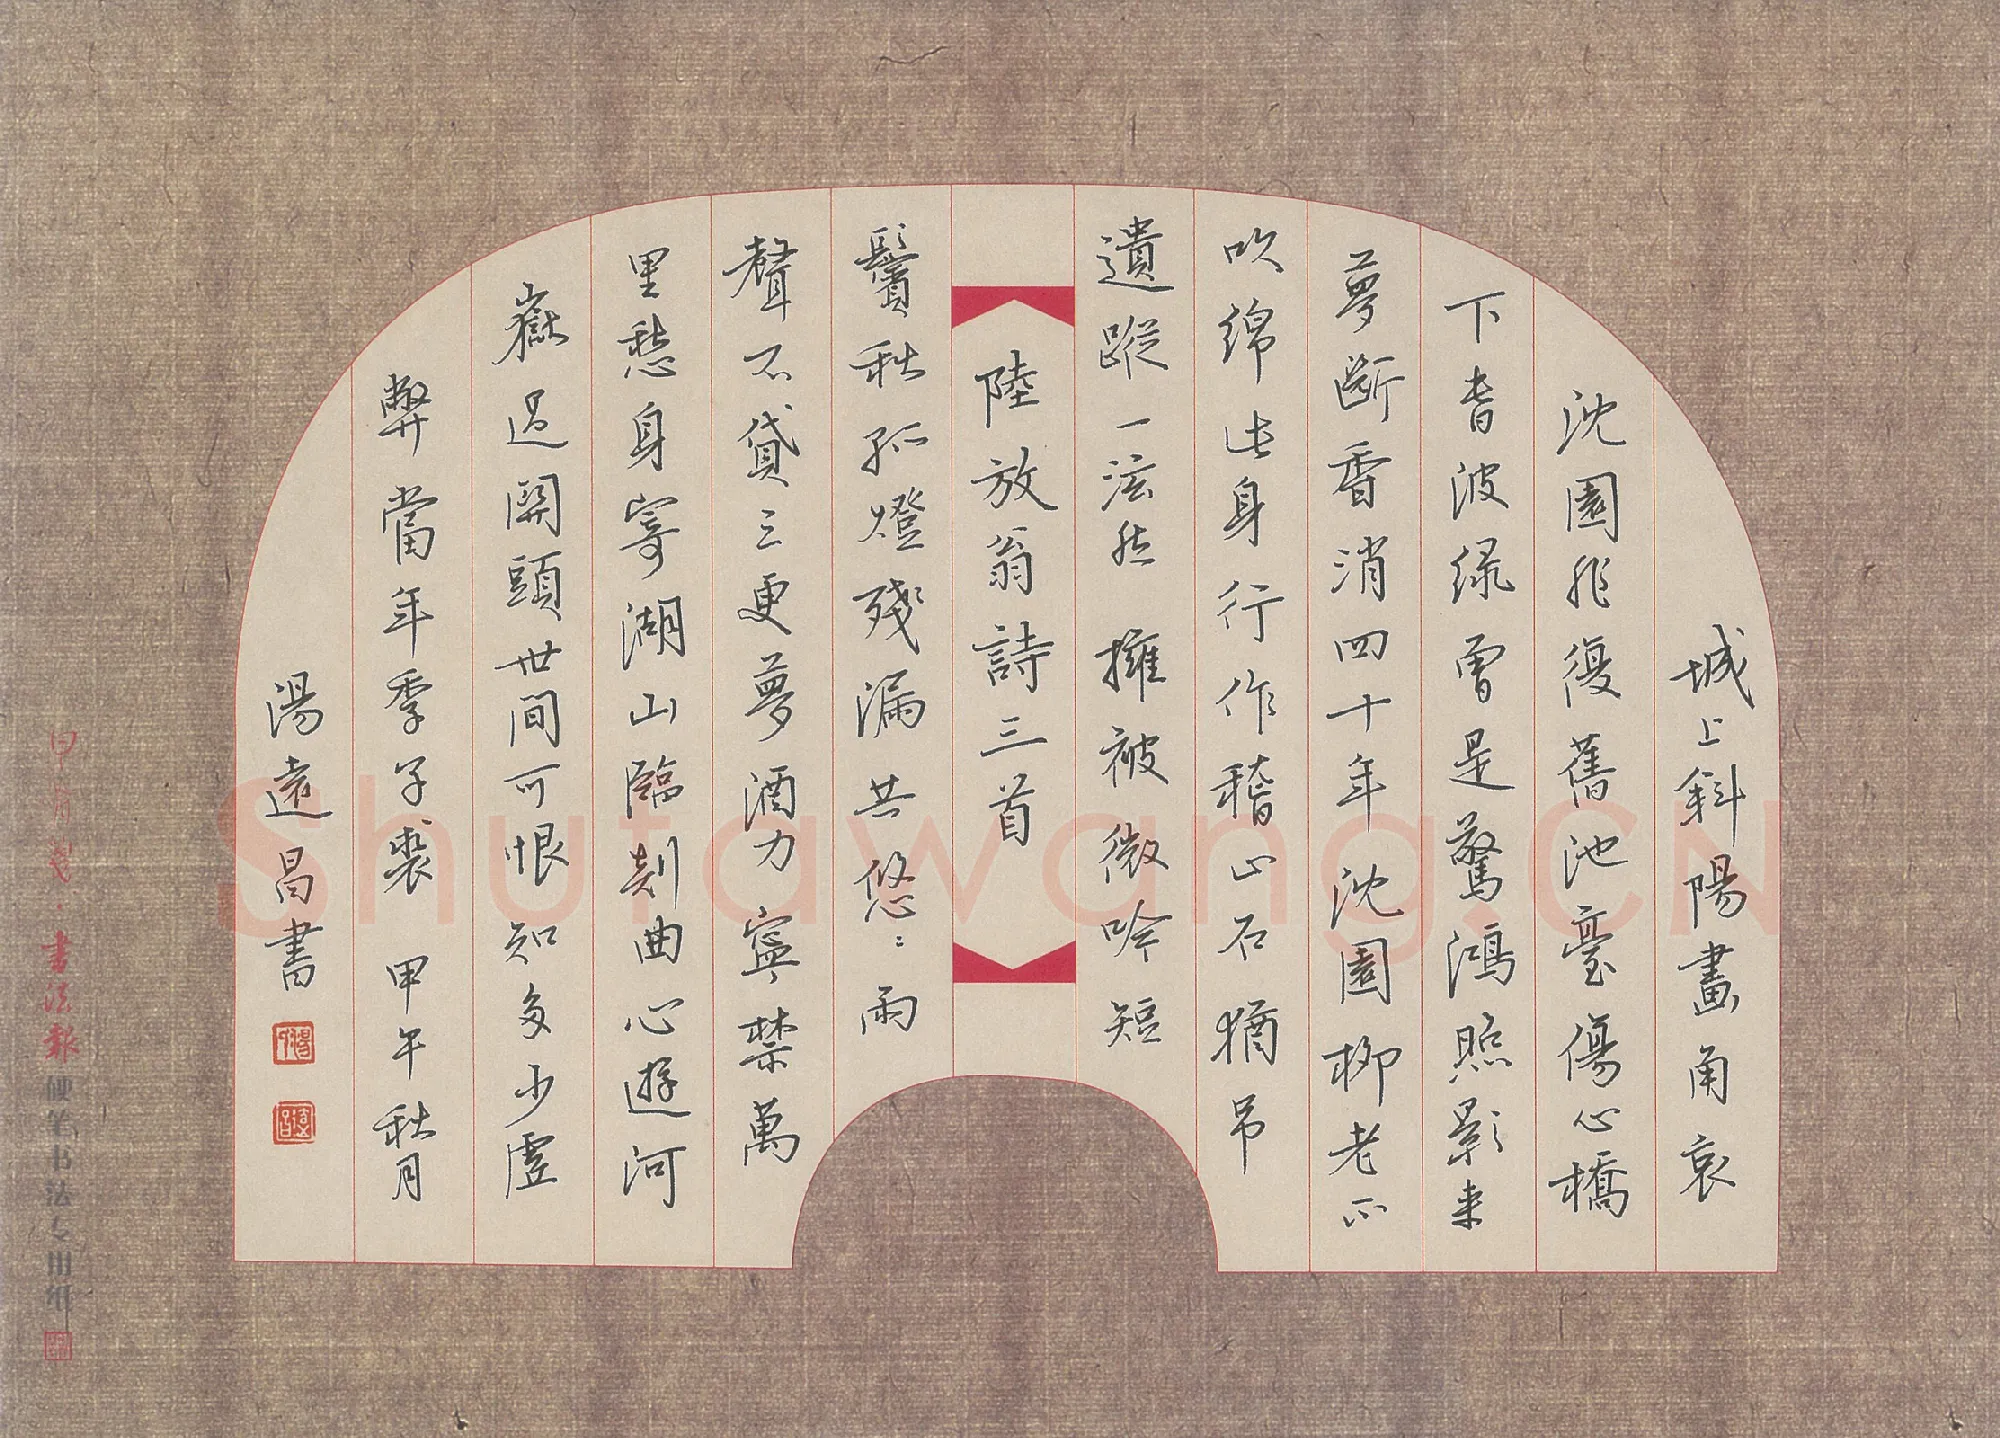 城上斜陽畫角哀
沈園非復舊池臺傷心橋
下春波绿曾是驚鴻照影来
夢斷香消四十年沈園柳老不
吹绵此身行作稽山石猶吊
遺蹤一泫然擁被微吟短
陸放翁詩三首
鬢秋孤燈殘漏共悠〻雨
聲不貸三更夢酒力寧禁萬
里愁身寄湖山臨剡曲心遊河
嶽過關頭世間可恨知多少虚
弊當年季子裘甲午秋月
湯遠昌書
书法報硬笔书法专用纸
Shufawang.CN